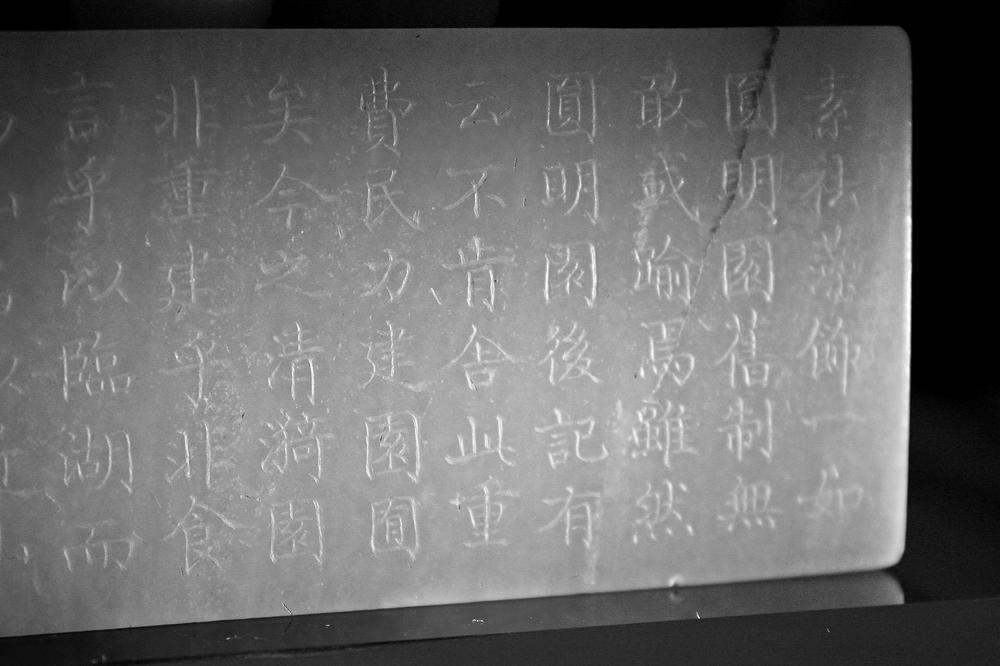 素祛藻飾一如
圓明園舊制無
敢或踰焉雖然
圓明園後記有
云不肯舍此重
費民力建園囿
矣今之清漪園
非重建乎非食
言乎以臨湖而